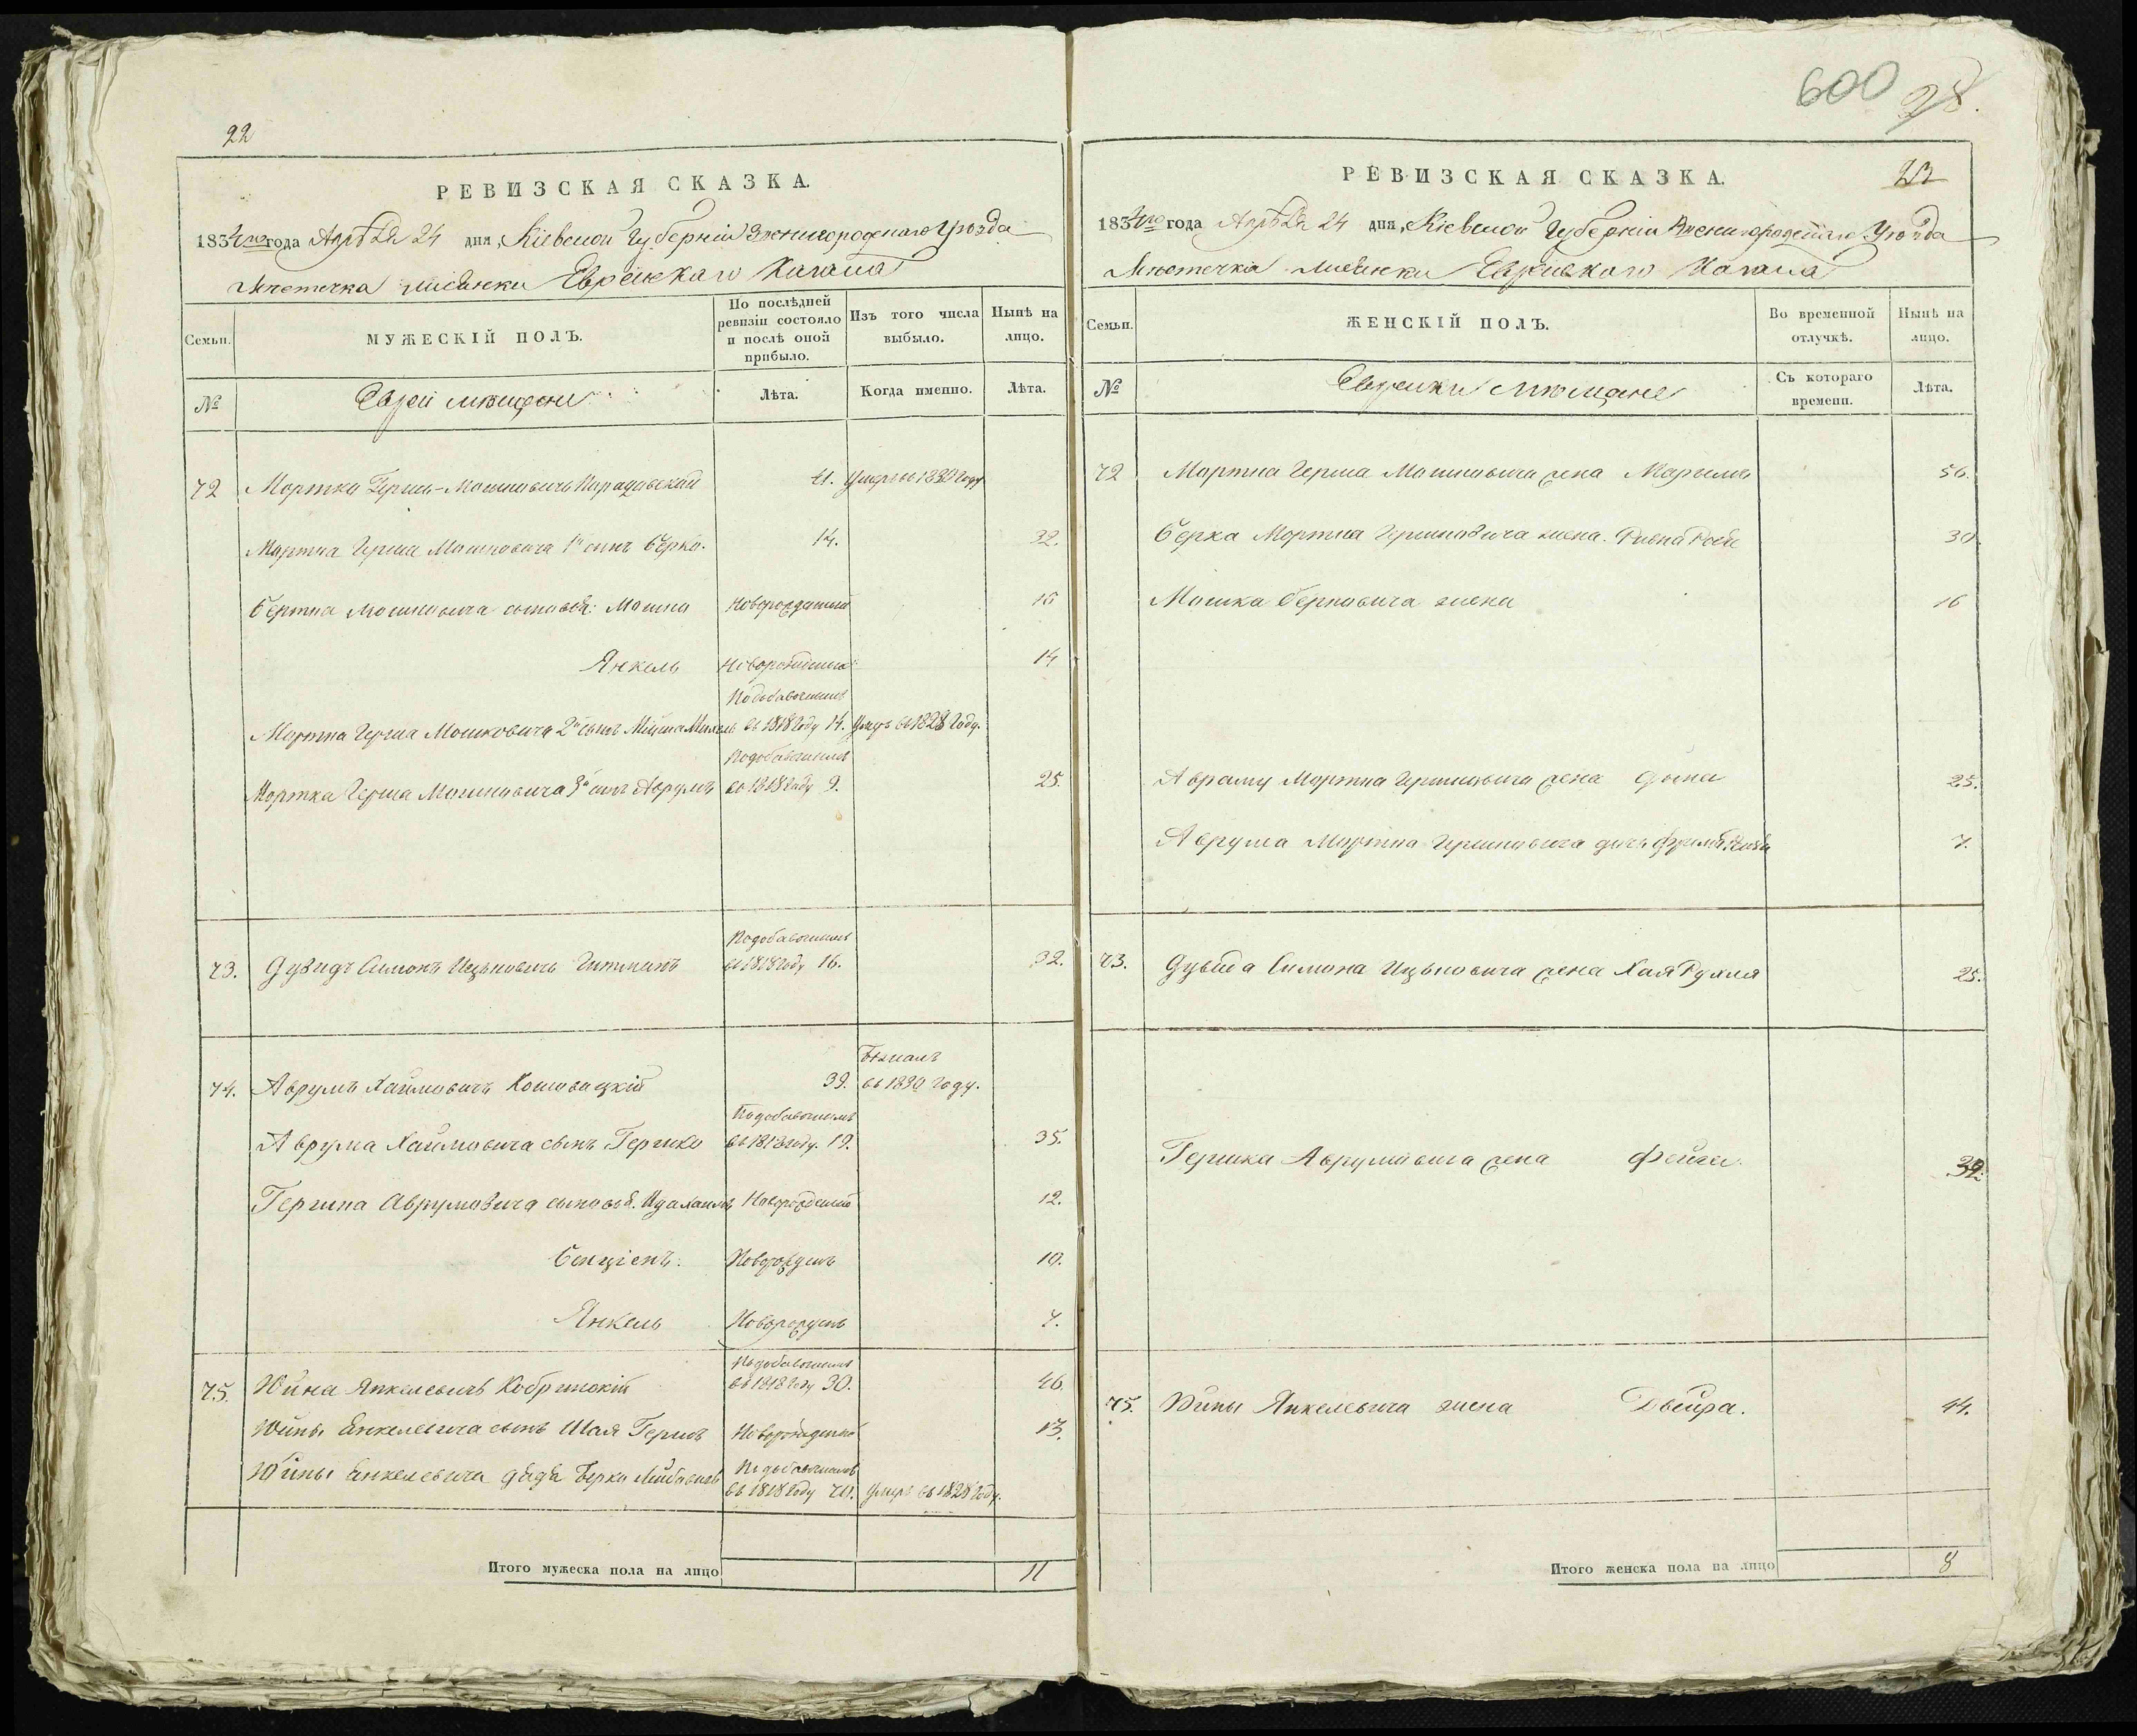 600
98.
22
РЕВИЗСКАЯ СКАЗКА.
1834го года Апрѣля 24 дня, Кіевской Губерніи Звенигородскаго Уѣзда
Мѣстечка Лисянки Еврейскаго Кагала
Семьи.
МУЖЕСКІЙ ПОЛЪ.
По послѣдней ревизіи состояло и послѣ оной прибыло.
Изъ того числа выбыло.
Нынѣ на лицо.
№
Евреи мѣщане
Лѣта.
Когда именно.
Лѣта.
72 Мортко Герш-Мошковичь 41. Умеръ въ 1830 году
Мортка Герша Мошковича 1й сынъ Берко. 14. 32.
Берка сыновья: Мошко Новорожденный 16
Янкель Новорожденный 14
Подобавочнымъ
Мортка Герша Мошковича 2й сынъ въ 1818 Году 14. Умеръ въ 1828 Году.
Подобавочнымъ
Мортка Герша Мошковича 3й сынъ Аврумъ въ 1818 году 9. 25.
Подобавочнымъ
73. Дувидъ Симонъ Ицьковичь въ 1818 году 16. 32.
Бѣжалъ
74. Аврумъ Хаимовичъ Кошовацкій 39. въ 1830 Году.
Подобавочнымъ
Аврума Хаимовича сынъ Гершко въ 1818 году. 19. 35.
Гершка Аврумовича сыновья. Новорожденный 12.
Бенціенъ. Новорожденъ 10.
Янкель Новорожденъ 7.
Подобавочнымъ
75. Юйна Янкелевичъ Кобринскій въ 1818 Году 30. 46.
Юйны Янкелевича сынъ Шая Гершъ Новорожденный 13.
Подобавочнымъ
Юйны Янкелевича дядя Берко Лейбовичъ въ 1818 Году Умеръ въ 1828 Году.
Итого мужеска пола на лицо 11
23
РЕВИЗСКАЯ СКАЗКА.
1834го года Апрѣля 24 дня, Кіевской Губерніи Звенигородскаго Уѣзда
Мѣстечка Лисянки Еврейскаго Кагала
Семьи.
ЖЕНСКІЙ ПОЛЪ.
Во временной отлучкѣ.
Нынѣ на лицо.
№
Еврейки Мѣщане
Съ котораго времени.
Лѣта.
72 Мортка Герша Мошковича жена 56.
Берка Мортка Гершковича жена. 30.
Мошка Берковича жена 16
Аврума Мортка Гершковича жена 25.
Аврума Мортка Гершковича дочь 7.
73. Дувида Симона Ицьковича жена Хая 25.
Гершка Аврумовича жена Фейга. 32.
75. Юйны Янкелевича жена Двейра. 44.
Итого женска пола на лицо 8